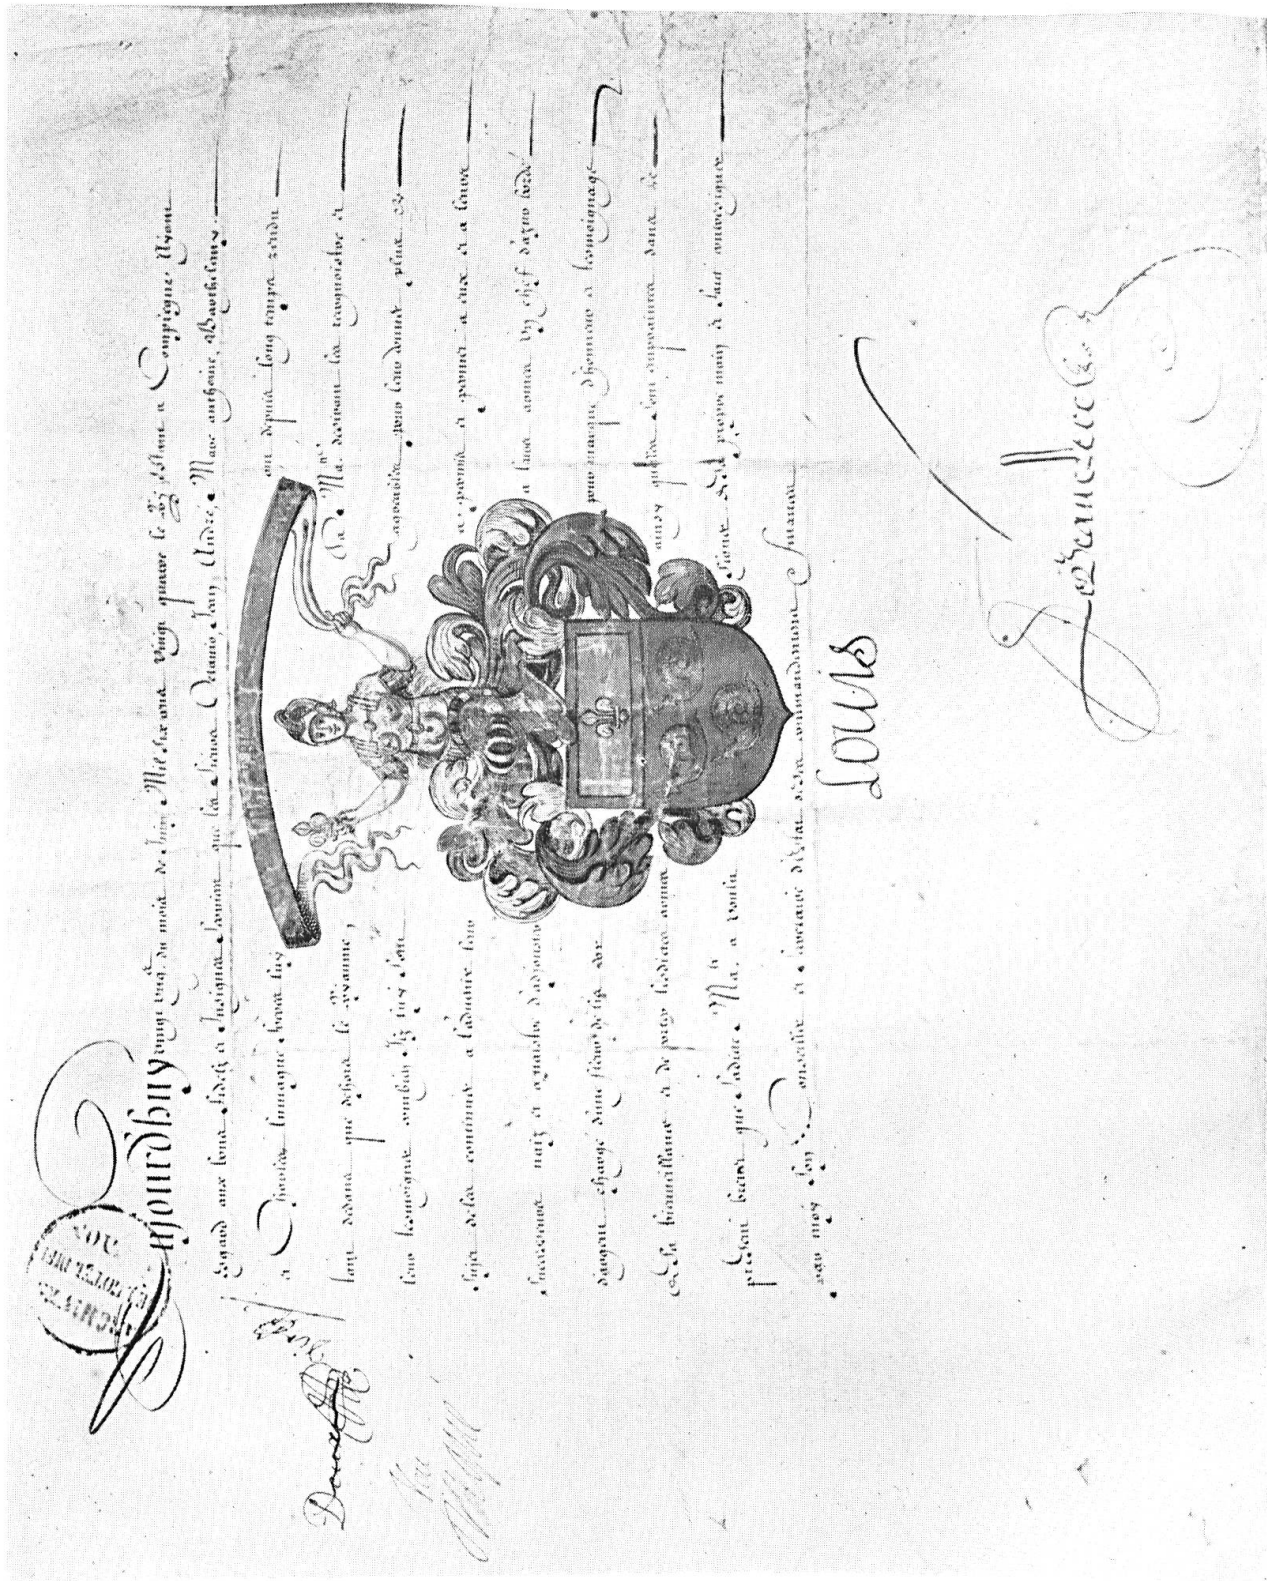 Aujourdhuy vingt ung.e du mois de Juin Mil six cens vingt quatre le Roy Estant a Compiegne Ayant
Esgard aux bons fidelz et Insignes services que les sieurs Octavio, Jean, André, Marc anthoine, Barthelemy
et Charles Lumague freres luy ont depuis long temps rendu
tant dedans que dehors le Royaume, Sa Ma.té desirant les recognoistre et
leur tesmoigner combien Ilz luy sont agreables, pour leur donner plus de
sujet de les continuer a l'advenir leur a permis et permet a eux et a leurs
successeurs naiz et a naistre d'adjouster a leurs armes ung chef d'azur bordé
d'argent chargé d'une fleur de lis d'or pour marque d'honneur et tesmoignage
de sa bienveillance et de porter lesdites armes ainsy qu'elles sont empraintes dans le
present brevet que sadite Ma.té a voulu signer de sa propre main et faict contresigner
par moy son Conseiller et Secretaire d'Estat et de ses commandemens finances
Louis
De Beaucler
ARCHIVES